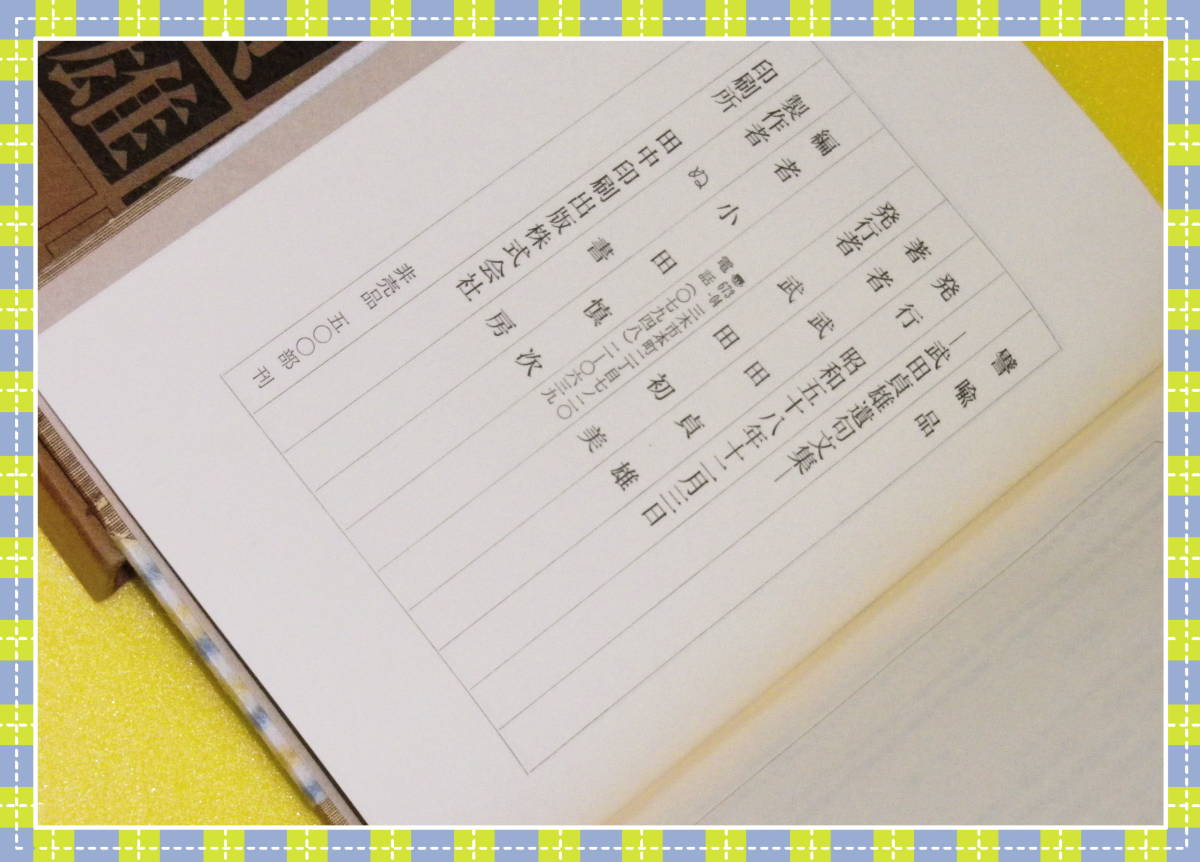 譬喩品
―武田貞雄遺句文集―
発行 昭和五十八年十二月三日
著者 武田貞雄
発行者 武田初美
〒673-04 三木市本町二丁目七ノ二〇
電話(〇七九四八)二―〇六三九
編者 小田慎次
製作者 ぬ書房
印刷所 田中印刷出版株式会社
非売品 五〇〇部刊
雄